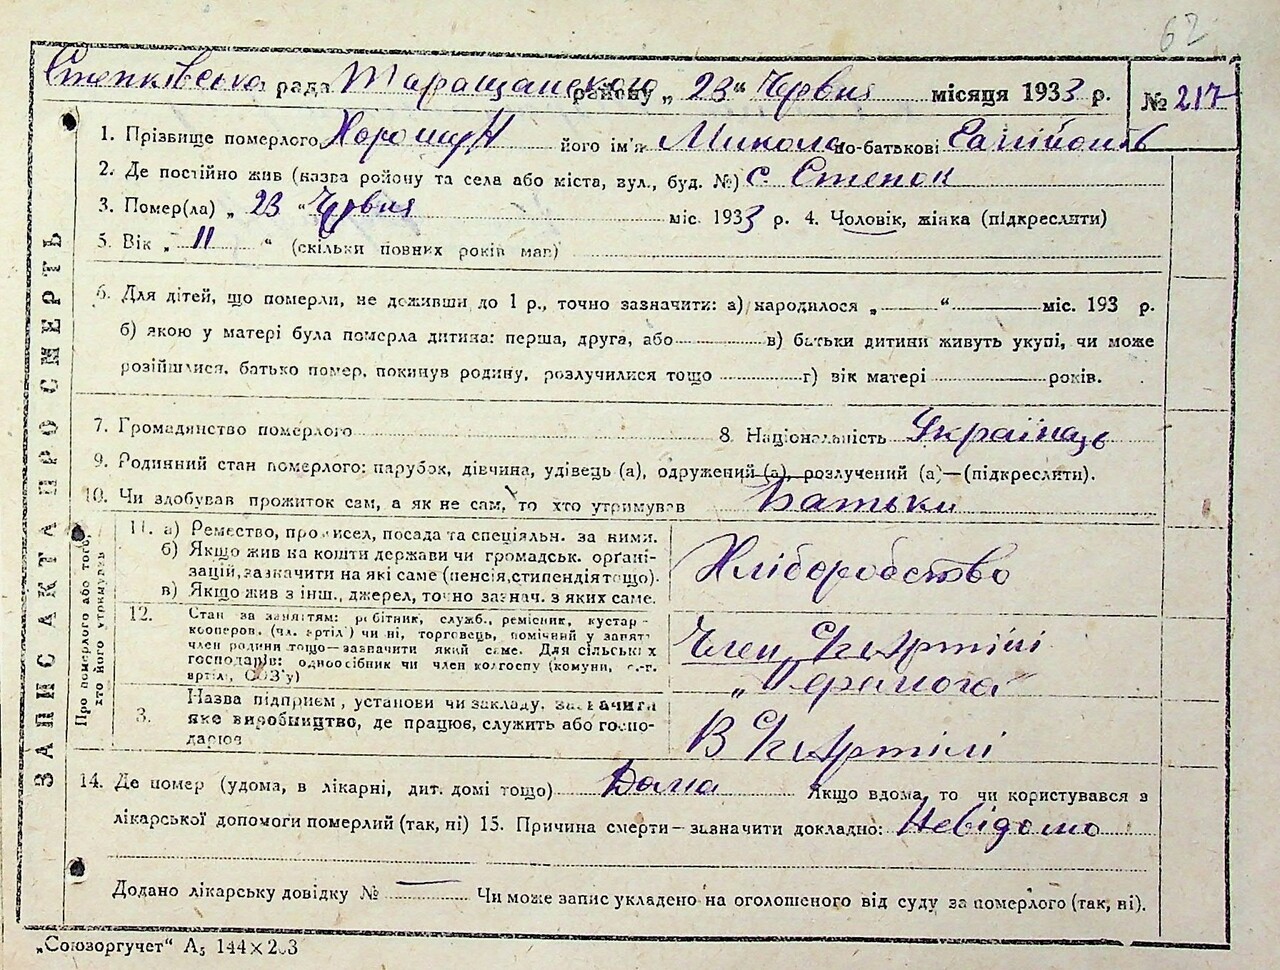 62
Степківська рада Таращанського району „ 23 “ Червня місяця 1933 р.
№ 217
1. Прізвище померлого Хорошун його ім'я Микола по-батькові
2. Де постійно жив (назва району та села або міста, вул., буд. №) с. Степок
3. Помер(ла) „ 23 “ Червня міс. 1933 р. 4. Чоловік, жінка (підкреслити)
5. Вік „ 11 “ (скільки повних років мав)
6. Для дітей, що померли, не доживши до 1 р., точно зазначити: а) народилося „ “ міс. 193 р.
б) якою у матері була померла дитина: перша, друга, або в) батьки дитини живуть укупі, чи може
розійшлися, батько помер, покинув родину, розлучилися тощо г) вік матері років.
7. Громадянство померлого 8. Національність Українець
9. Родинний стан померлого: парубок, дівчина, удівець (а), одружений (а), розлучений (а)—(підкреслити).
10. Чи здобував прожиток сам, а як не сам, то хто утримував Батьки
11. а) Ремество, промисел, посада та спеціяльн. за ними.
б) Якщо жив на кошти держави чи громадськ. орґані-
зацій, зазначити на які саме (пенсія, стипендія тощо).
в) Якщо жив з інш., джерел, точно зазнач. з яких саме.
Хліборобство
12. Стан за заняттям: робітник, служб., ремісник, кустар-
кооперов. (чл. артіл') чи ні, торговець, помічний у занят.
член родини тощо—зазначити який саме. Для сільських
господарів: одноосібник чи член колгоспу (комуни, с.-г.
артілі, СОЗ'у)
Член С/г Артілі
„
3. Назва підприєм, установи чи закладу, зазначити
яке виробництво, де працює, служить або госпо-
дарює
В С/г Артілі
14. Де помер (удома, в лікарні, дит. домі тощо) Дома Якщо вдома, то чи користувався з
лікарської допомоги померлий (так, ні) 15. Причина смерти—зазначити докладно: Невідомо
Додано лікарську довідку № — Чи може запис укладено на оголошеного від суду за померлого (так, ні).
„Союзоргучет“ А5 144×203
ЗАПИС АКТА ПРО СМЕРТЬ
Про померлого або того,
хто його утримував